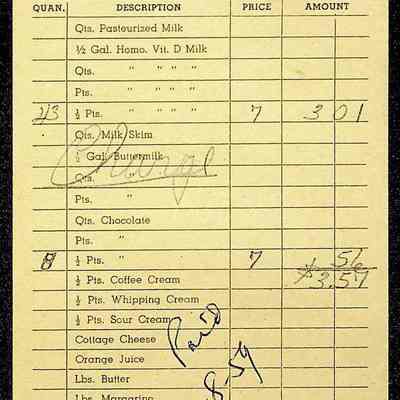 QUAN. DESCRIPTION PRICE AMOUNT
Qts. Pasteurized Milk
½ Gal. Homo. Vit. D Milk
Qts. " " " "
Pts. " " " "
43 ½ Pts. " " " " 7 3 01
Qts. Milk Skim.
½ Gal. Buttermilk
Charge
Qts. "
Pts. "
Qts. Chocolate
Pts. "
8 ½ Pts. " 7 56
½ Pts. Coffee Cream $3.57
½ Pts. Whipping Cream
½ Pts. Sour Cream
Cottage Cheese
Paid
Orange Juice
Lbs. Butter
8-59
Lbs. Margarine